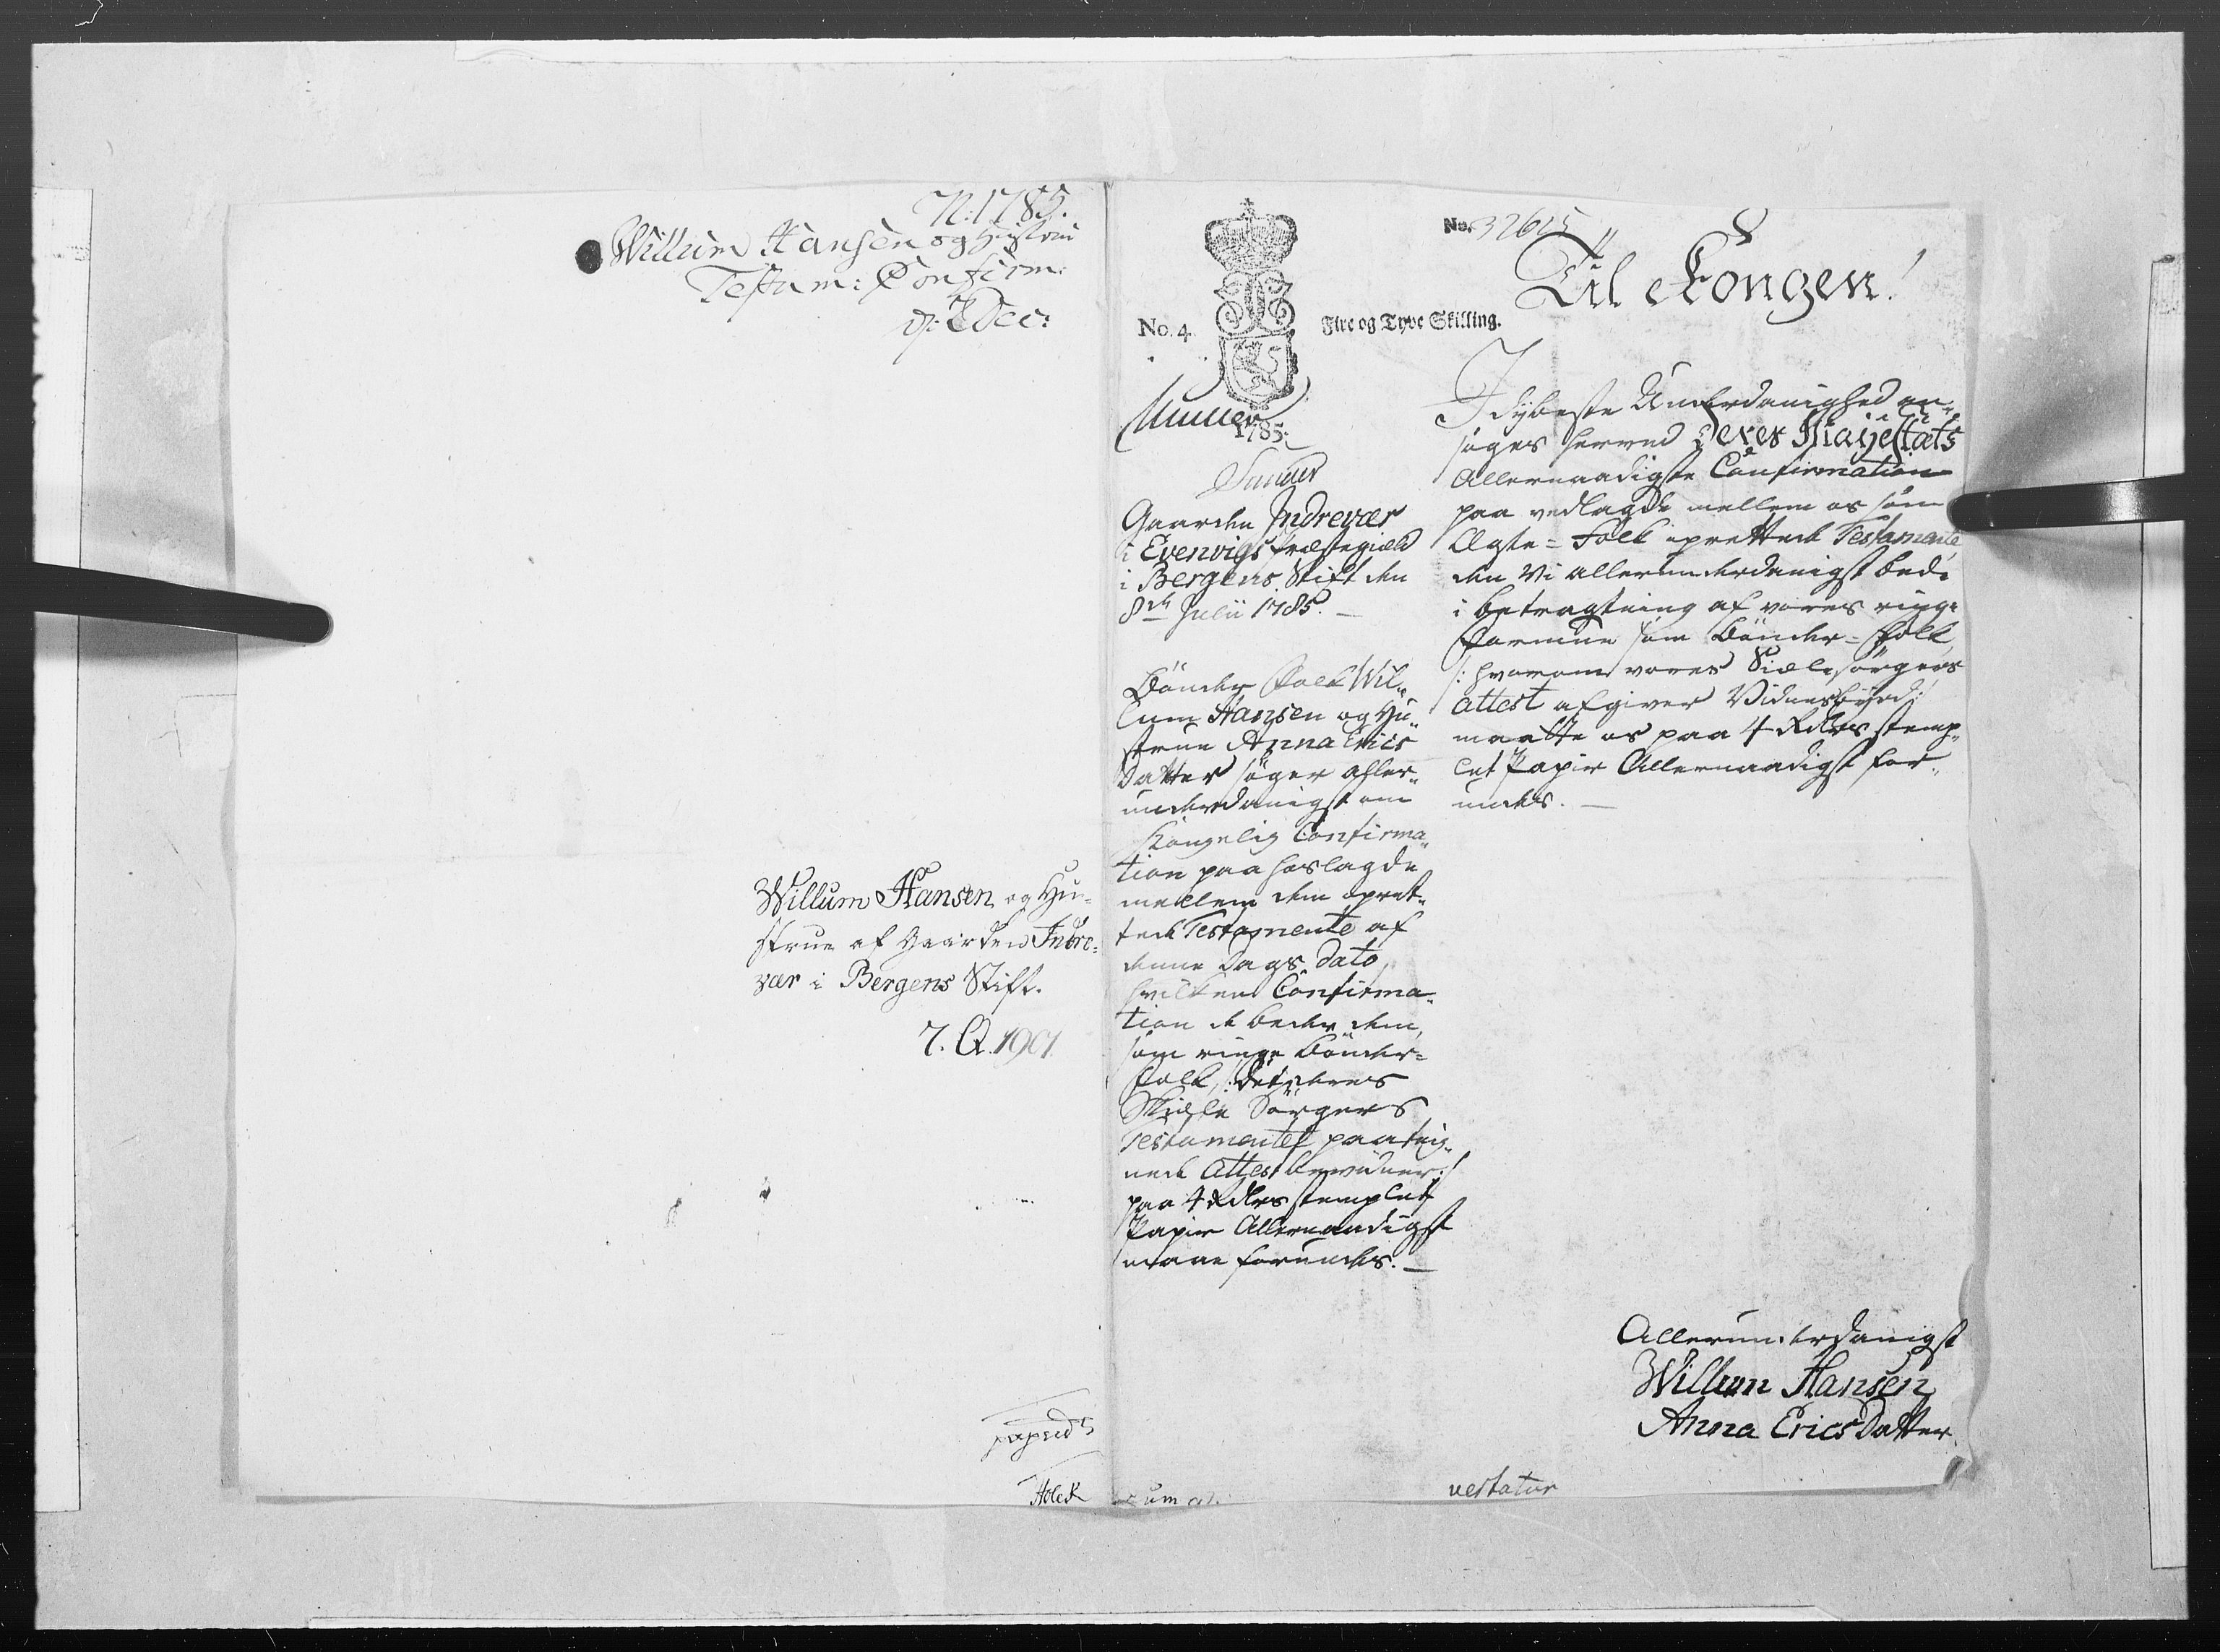 N: 1785.
Willum Hansen og Hustrue
Testam: Confirm:
d: 2 Dec:
Willum Hansen og Hu-
strue af Gaarden Indre-
vær i Bergens Stift.
7. Q. 1901
Holck
No. 32615
Til Kongen!
No. 4
Fire og Tyve Skilling.
1785.
Gaarden Indrevær
i Evenvigs Præstegield
i Bergens Stift den
8de Julii 1785.
Bönder Folk Wil-
lum Hansen og Hu-
strue Anna Erics
Datter söger aller-
underdanigst om
Kongelig Confirma-
tion paa hoslagde
mellem dem opret-
tede Testamente af
denne Dags Dato,
hvilken Confirma-
tion de beder dem,
som ringe Bönder-
Folk, /: det deres
Siæle Sörgers
Testamentet paateig-
nede Attest bevidner :/
paa 4 Rdlrs stemplet
Papir Allernaadigst
maae forundes.
I dybeste Underdanighed an-
söges herved Deres Majestæts
Allernaadigste Confirmation
paa vedlagde mellem os som
Ægte-Folk oprettede Testamente
den Vi allerunderdanigst bede
i betragtning af vores ringe
Formue som Bönder-Folk,
/: hvorom vores Siælesörgers
Attest afgiver Vidnesbyrd :/
maatte os paa 4 Rdlrs stemp-
let Papir Allernaadigst for-
undes.
Allerunderdanigst
Willum Hansen
Anna Erics Datter
vertatur